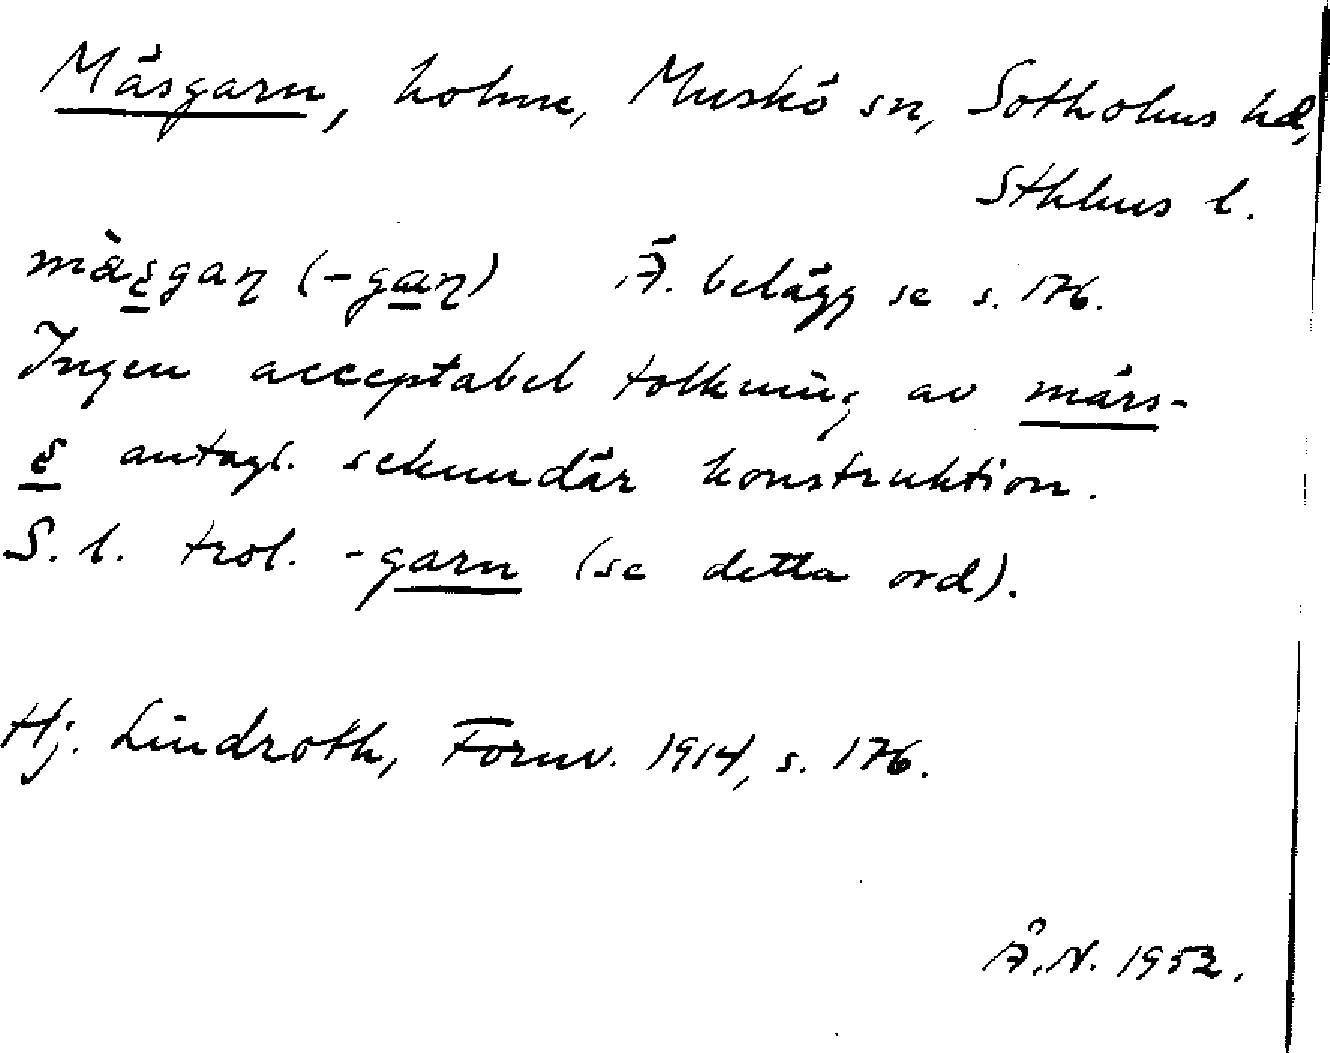 Mäsgarn, holme, Muskö sn, Sotholms hd,
Sthlms l.
mä̀s̱gaɳ (-gaṉɳ) Ä. belägg se s. 176.
Ingen acceptabel tolkning av märs-
s̱ antagl. sekundär konstruktion.
S. l. trol. -garn (se detta ord).
Hj. Lindroth, Fornv. 1914, s. 176.
Å.N. 1952.